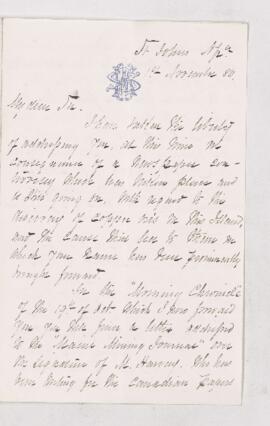 St. Johns Nfd.
1st November 80.
My dear Sir.
I have taken the liberty
of addressing you, at this time in
consequence of a News Paper con-
troversy which has taken place and
is still going on, with regard to the
discovery of Copper ores on this Island,
and the cause that led to
which your name has been prominently
brought forward.
In the "Morning Chronicle"
of the 19th of Oct. which I now forward
you you will find a letter addressed
to the " Mining Journal" over
the signature of M. Harvey. Who has
been writing for the Canadian Papers